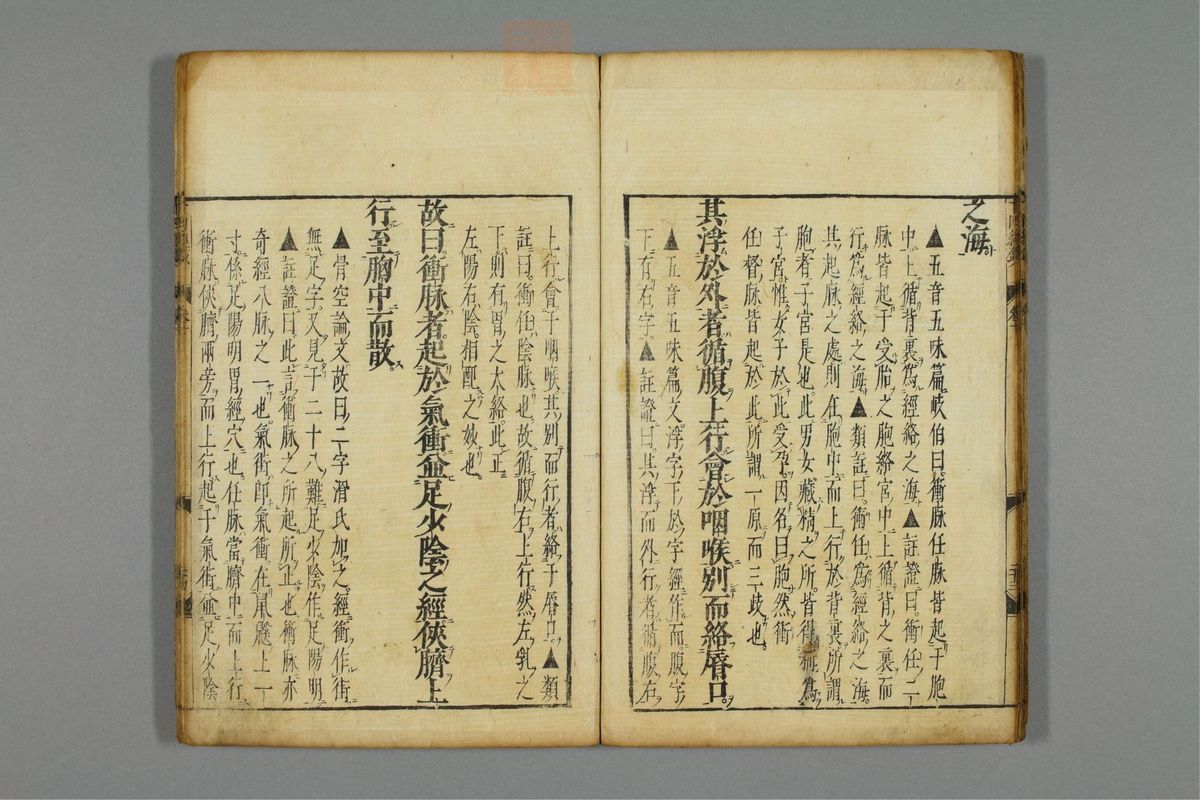 之海
▲五音五味篇岐伯曰衝脉任脉皆起于胞
中上循背裏爲經絡之海▲註證曰衝任二
脉皆起于受胎之胞絡宮中上循背之裏而
行爲經絡之海▲類註曰衝任爲經絡之海
其起脉之處則在胞中而上行於背裏所謂
胞者子宮是也此男女藏精之所皆得稱爲
子宮惟女子於此受孕因名曰胞然衝
任督脉皆起於此所謂一原而三歧也
其浮於外者循腹上行會於咽喉別而絡脣口
▲五音五味篇文浮字下於字經作而腹字
下有右字▲註證曰其浮而外行者循腹右
上行會于咽喉其別而行者絡于脣口▲類
註曰衝任陰脉也故循腹右上行然左乳之
下則有胃之大絡此正
左陽右陰相配之妙也
故曰衝脉者起於氣衝並足少陰之經俠臍上
行至胸中而散
▲骨空論文故曰二字滑氏加之經衝作街
無足字又見于二十八難足少陰作足陽明
▲註證曰此言衝脉之所起所止也衝脉亦
奇經八脉之一也氣街即氣衝在
上一
寸係足陽明胃經穴也任脉當臍中而上行
衝脉俠臍兩旁而上行起于氣街並足少陰